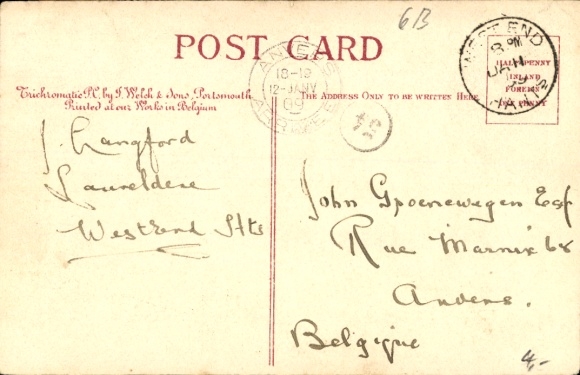 6B
POST CARD
Trichromatic P.C. by F. Welch & Sons, Portsmouth
Printed at our Works in Belgium
The Address Only to be written Here.
HALFPENNY
INLAND
FOREIGN
PENNY
WEST END
8 PM
JA 11
HANTS
18-19
12-JANV
09
J. Langford
Laureldene
West End Hts
John Groenewegen Esq
Rue Marnix 68
Anvers.
Belgique
4,-